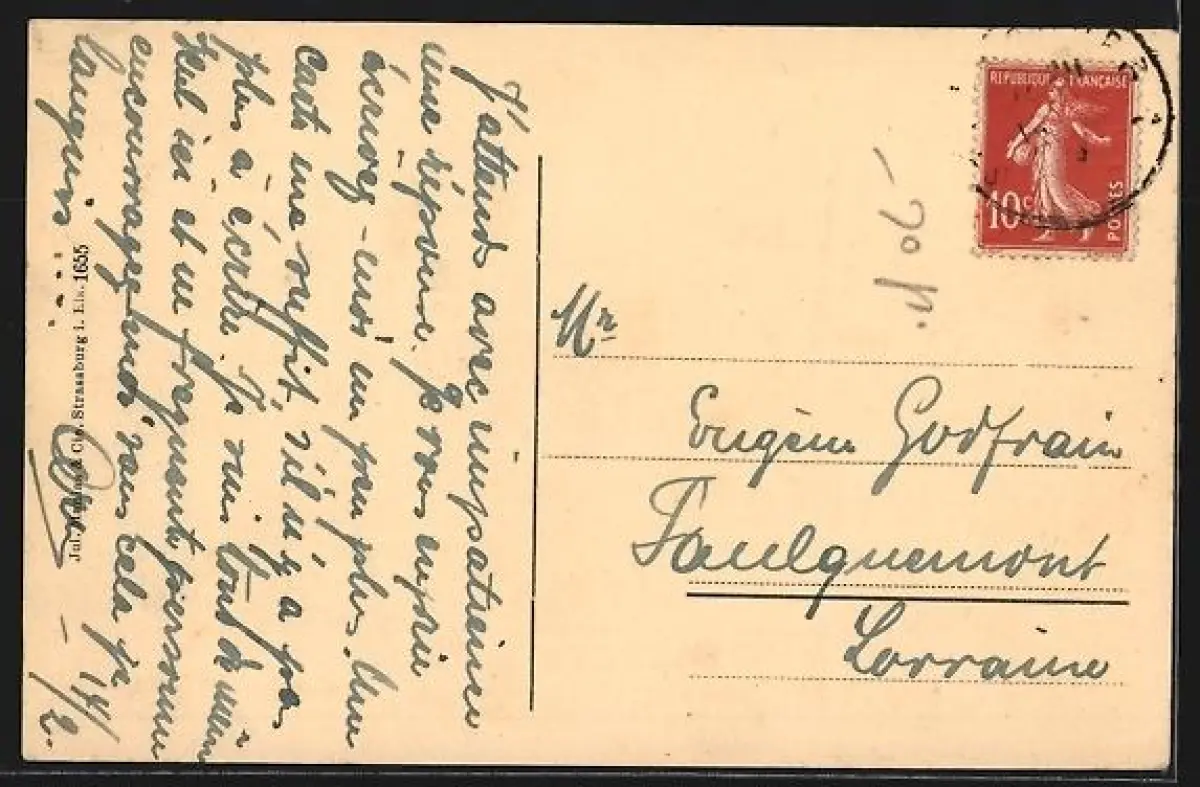 J'attends avec impatience
une réponse. Je vous en prie
écrivez-moi un peu plus. Une
carte me suffit, s'il n'y a pas
plus à écrire. Je suis tout de même
seul ici et ne fréquente personne
encouragez-moi sans cela je
languis
14/2.
Jul. & Cie. Strassburg i. Els. 1655
REPUBLIQUE FRANÇAISE
10c
POSTES
90 
Mr
Eugène Godfrain
Faulquemont
Lorraine